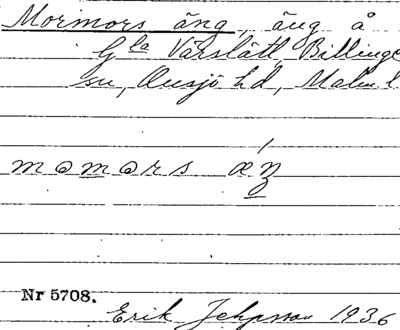 Mormors äng, äng å
Gla Värslätt, Billinge
sn, Onsjö hd, Malm l
mɷmɷrs æŋ
Nr 5708.
Erik Jeppsson 1936